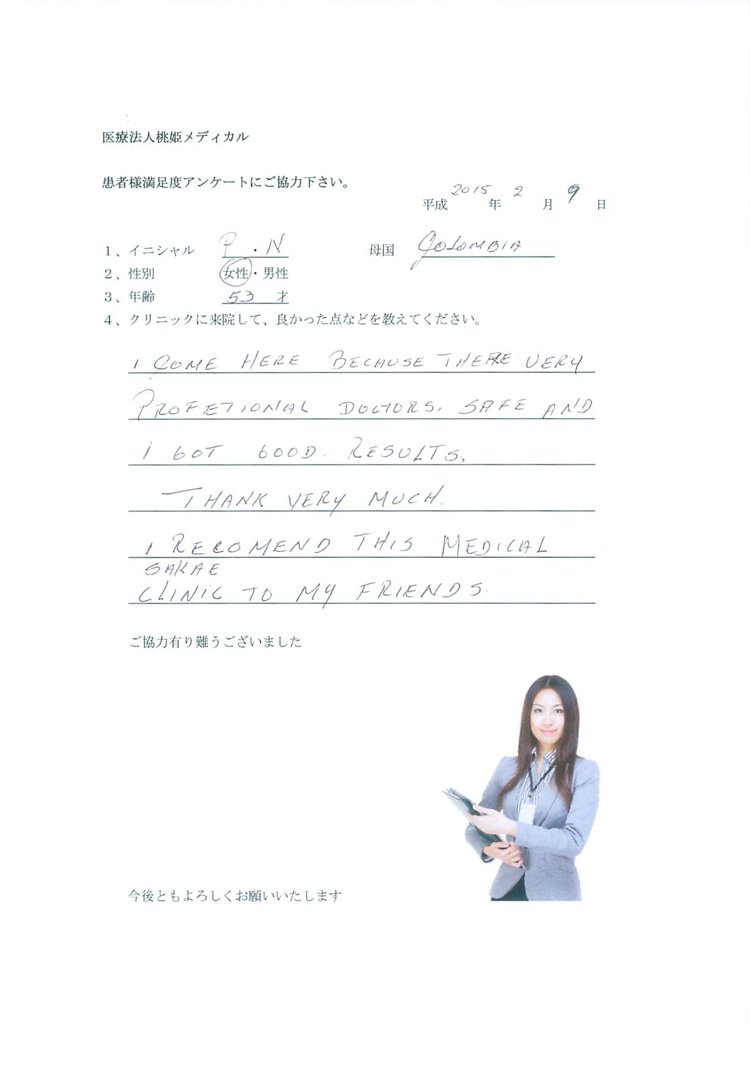 医療法人桃姫メディカル
患者様満足度アンケートにご協力下さい。
平成 2015 年 2 月 9 日
1、イニシャル P ・ N 母国 COLOMBIA
2、性別 女性・男性
3、年齢 53 才
4、クリニックに来院して、良かった点などを教えてください。
I COME HERE BECAUSE THERE VERY
PROFETIONAL DOCTORS. SAFE AND
I GOT GOOD. RESULTS.
THANK VERY MUCH.
I RECOMEND THIS MEDICAL
SAKAE
CLINIC TO MY FRIENDS.
ご協力有り難うございました
今後ともよろしくお願いいたします